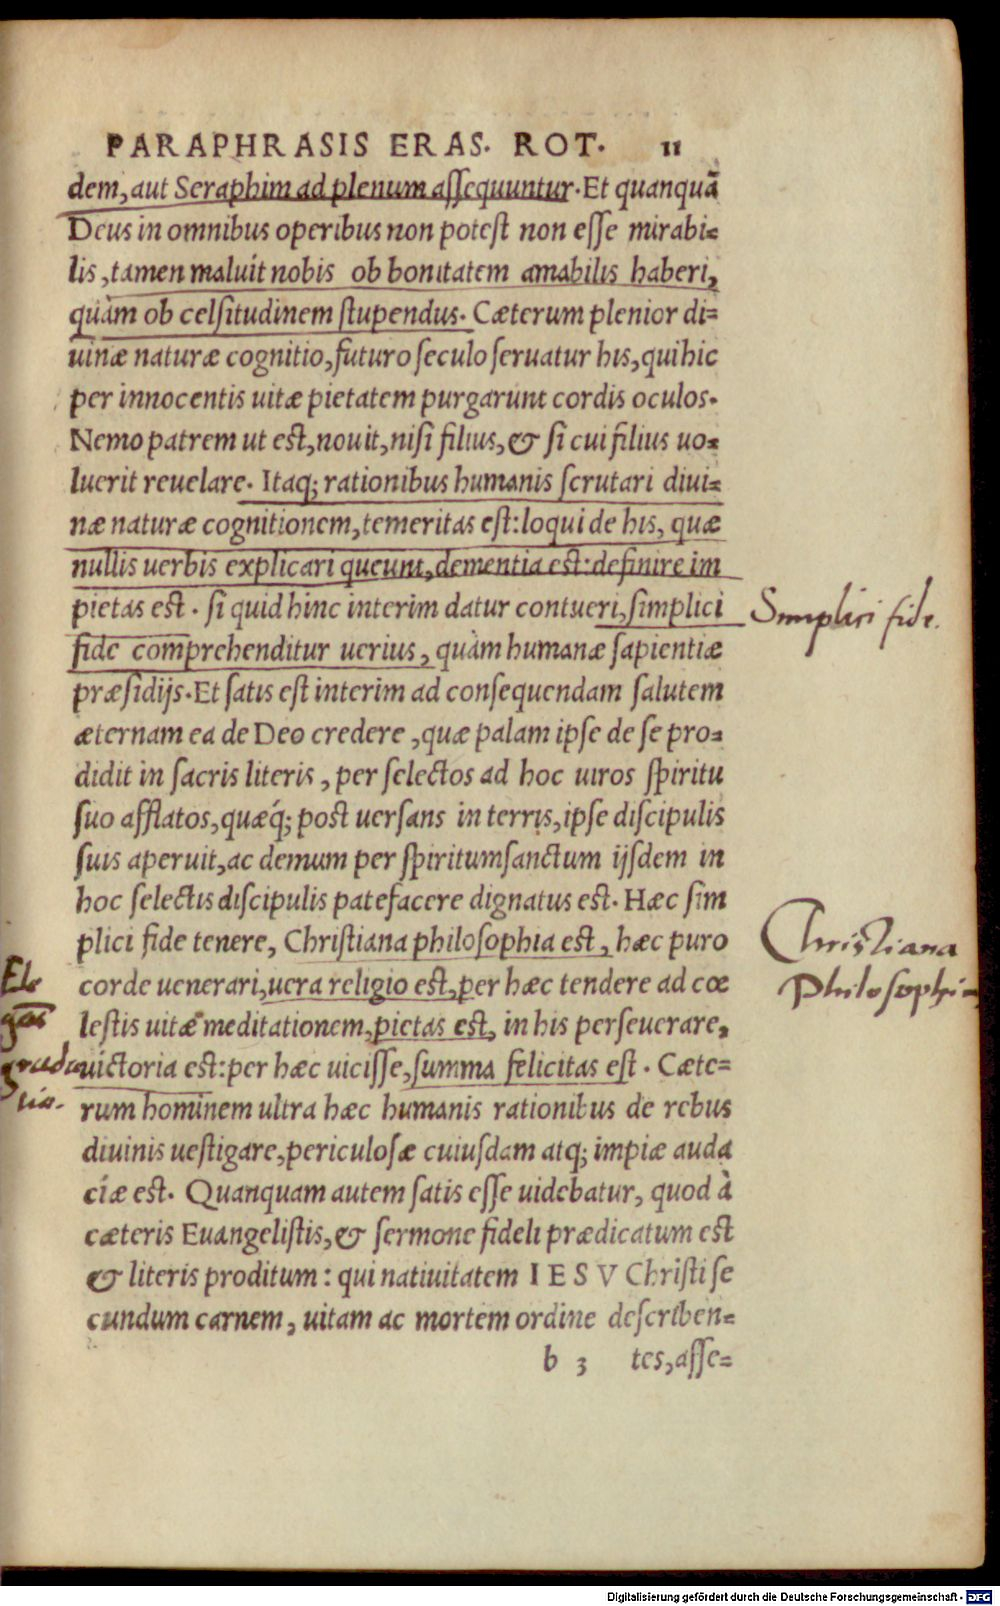 PARAPHRASIS ERAS. ROT. 11
dem, aut Seraphim ad plenum aſſequuntur. Et quanquã
Deus in omnibus operibus non poteſt non eſſe mirabi=
lis, tamen maluit nobis ob bonitatem amabilis haberi,
quàm ob celſitudinem ſtupendus. Cæterum plenior di=
uinæ naturæ cognitio, futuro ſeculo ſeruatur his, qui hic
per innocentis uitæ pietatem purgarunt cordis oculos.
Nemo patrem ut eſt, nouit, niſi filius, & ſi cui filius uo=
luerit reuelare. Itaq; rationibus humanis ſcrutari diui=
næ naturæ cognitionem, temeritas eſt: loqui de his, quæ
nullis uerbis explicari queunt, dementia eſt: definire im
pietas eſt. ſi quid hinc interim datur contueri, ſimplici
fide comprehenditur uerius, quàm humanæ ſapientiæ
præſidijs. Et ſatis eſt interim ad conſequendam ſalutem
æternam ea de Deo credere, quæ palam ipſe de ſe pro=
didit in ſacris literis, per ſelectos ad hoc uiros ſpiritu
ſuo afflatos, quæq́; poſt uerſans in terris, ipſe diſcipulis
ſuis aperuit, ac demum per ſpiritumſanctum ijſdem in
hoc ſelectis diſcipulis patefacere dignatus eſt. Hæc ſim
plici fide tenere, Chriſtiana philoſophia eſt, hæc puro
corde uenerari, uera religio eſt, per hæc tendere ad cœ
leſtis uitæ meditationem, pietas eſt, in his perſeuerare,
uictoria eſt: per hæc uiciſſe, ſumma felicitas eſt. Cæte=
rum hominem ultra hæc humanis rationibus de rebus
diuinis ueſtigare, periculoſæ cuiuſdam atq; impiæ auda
ciæ eſt. Quanquam autem ſatis eſſe uidebatur, quod à
cæteris Euangeliſtis, & ſermone fideli prædicatum eſt
& literis proditum: qui natiuitatem IESV Chriſti ſe
cundum carnem, uitam ac mortem ordine deſcriben=
b 3 tes, aſſe=
Simplici fide.
Christiana
Philosophia
Ele
gãs
grada
tio.
Digitalisierung gefördert durch die Deutsche Forschungsgemeinschaft - DFG